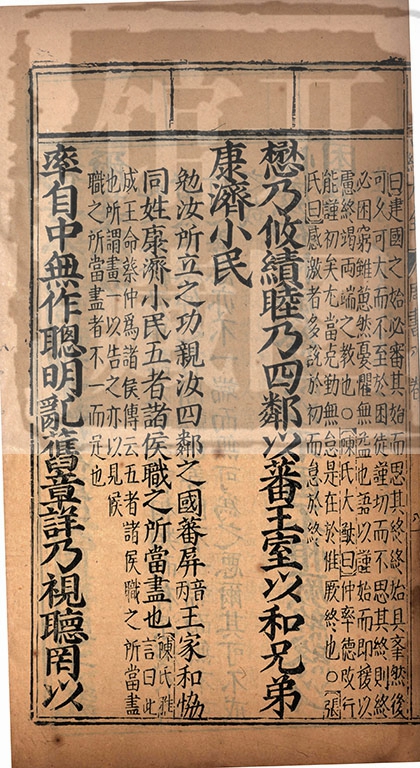 曰建國之始必審其始而思其終終始具牽然後
可久可大而不至於困徒謹初而不思其終則終
必困窮雖蒽然憂懼無益也語以謹始而即援以
慮終竭両端之教也○陳氏大猷曰仲率德改行
能謹初矣尤當克勤無怠是在於惟厥終也○張
氏曰感激者多銳於初而怠於終
懋乃攸績睦乃四鄰以蕃王室以和兄弟
康濟小民
勉汝所立之功親汝四鄰之國蕃屏音丙王家和恊
同姓康濟小民五者諸侯職之所當盡也陳氏雅言曰此
成王命蔡仲爲諸侯傳云五者諸侯職之所當盡
也所謂盡一以告之亦以見侯
職之所當盡者不一而足也
率自中無作聰明亂舊章詳乃視聽罔以